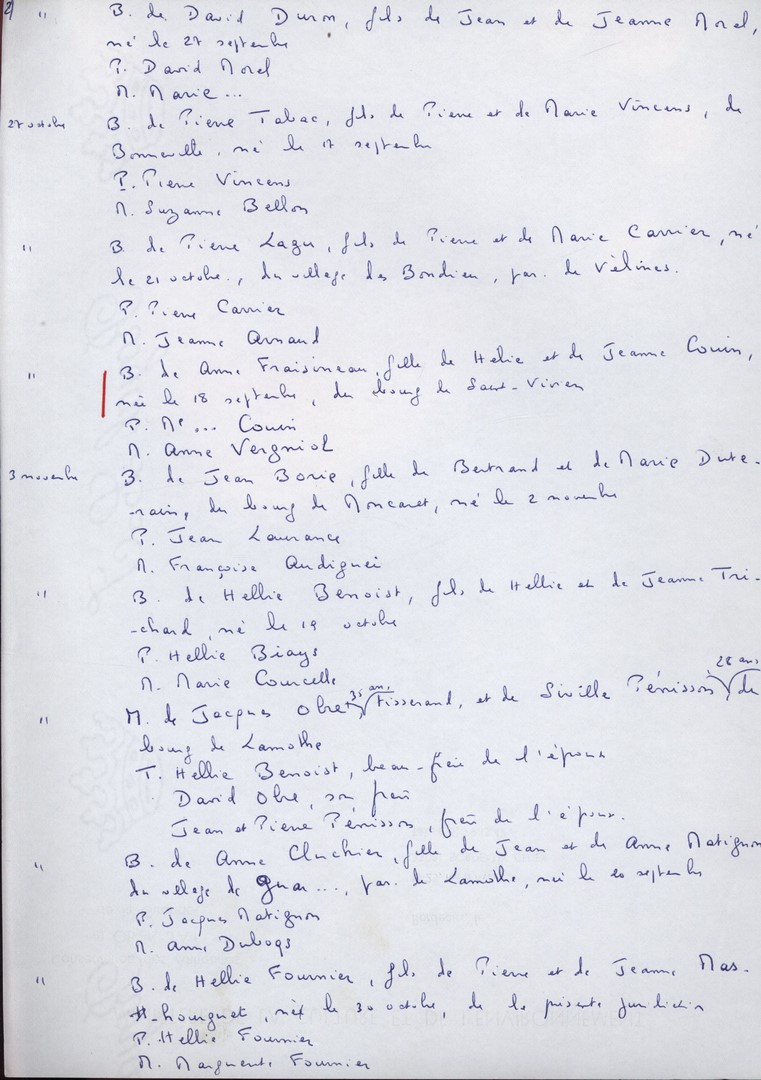 2) " B. de David Duron, fils de Jean et de Jeanne Morel,
né le 27 septembre
P. David Morel
M. Marie ...
27 octobre B. de Pierre Tabac, fils de Pierre et de Marie Vincens, de
Bonneville, né le 17 septembre
P. Pierre Vincens
M. Suzanne Bellon
" B. de Pierre Lagu, fils de Pierre et de Marie Carrier, né
le 21 octobre, du village des Bondieu, par. de Vélines.
P. Pierre Carrier
M. Jeanne Arnaud
" B. de Anne Fraisineau, fille de Helie et de Jeanne Couin,
née le 18 septembre, du bourg de Saint-Vivien
P. Me ... Couin
M. Anne Vergniol
3 novembre B. de Jean Borie, fille de Bertrand et de Marie Dute-
-rain, du bourg de Moncaret, né le 2 novembre
P. Jean Laurance
M. Françoise Audiguei
" B. de Hellie Benoist, fils de Hellie et de Jeanne Tri-
-chard, né le 19 octobre
P. Hellie Biays
M. Marie Courcelle
28 ans
35 ans
" M. de Jacques Obre, tisserand, et de Siville Périsson de
bourg de Lamothe
T. Hellie Benoist, beau-frère de l'époux
David Obre, son frère
Jean et Pierre Périsson, frère de l'épouse.
" B. de Anne Cluchier, fille de Jean et de Anne Matignon
du village de Guar..., par. de Lamothe, née le 20 septembre
P. Jacques Matignon
M. Anne Duboqs
" B. de Hellie Fournier, fils de Pierre et de Jeanne Mas-
-hourguet, né le 30 octobre, de la présente juridiction
P. Hellie Fournier
M. Marguerite Fournier